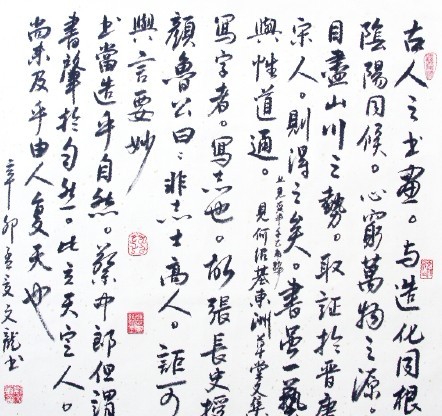 古人之书画。与造化同根
陰陽同候。心窮萬物之源
目盡山川之勢。取証於晉唐
宋人。則得之矣。書虽一藝
與性道通。見何绍基東洲草堂文集
寫字者。寫志也。故張長史授
顏魯公曰：非志士高人。詎可
與言要妙
书當造乎自然。蔡中郎但謂
書肇於自然。此立天定人。
尚未及乎由人复天也
辛卯孟夏文龍书